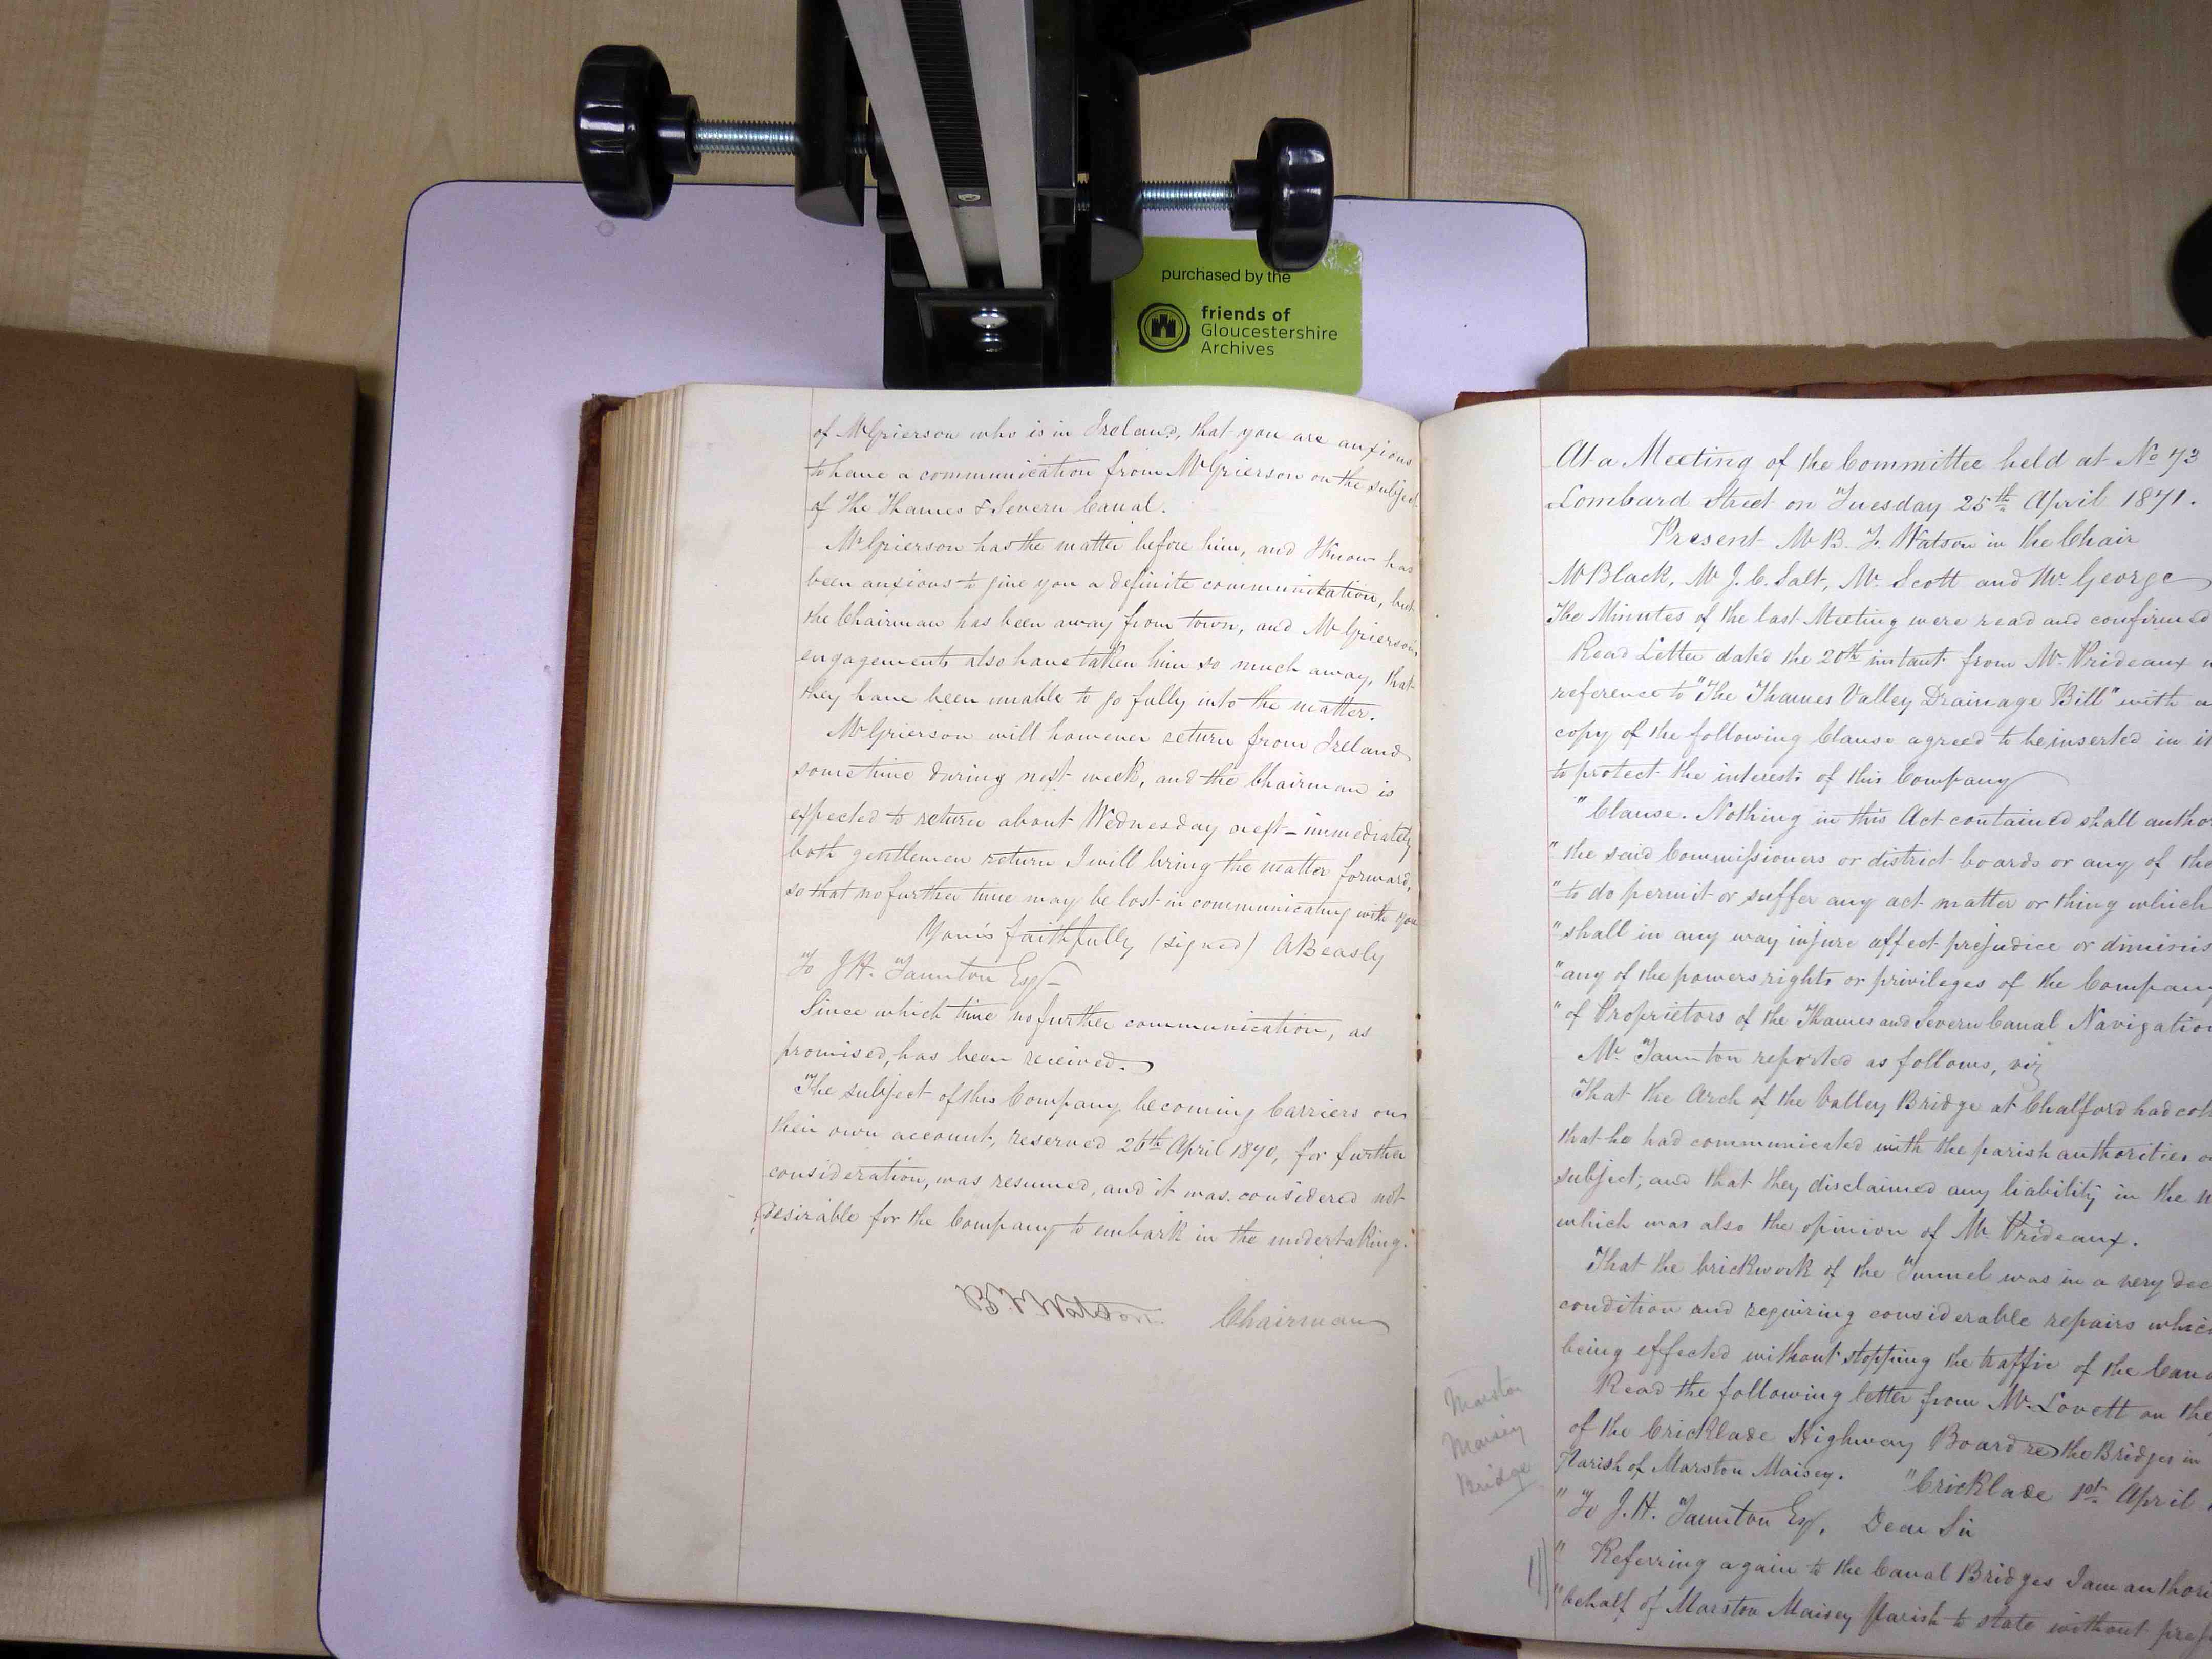 purchased by the
friends of
Gloucestershire
Archives
of Mr Grierson who is in Ireland, that you are anxious
to have a communication from Mr Grierson on the subject
of the Thames & Severn Canal.
Mr Grierson has the matter before him, and I know has
been anxious to give you a definite communication, but
the Chairman has been away from town, and Mr Grierson's
engagements also have taken him so much away, that
they have been unable to go fully into the matter.
Mr Grierson will however return from Ireland
sometime during next week, and the Chairman is
expected to return about Wednesday next – immediately
both gentlemen return I will bring the matter forward,
so that no further time may be lost in communicating with you
Yours faithfully (signed) A Beasly
To J.H. Taunton Esqr
Since which time no further communication, as
promised, has been received.
The subject of this Company becoming Carriers on
their own account, reserved 26th April 1870, for further
consideration, was resumed, and it was considered not
desirable for the Company to embark in the undertaking.
Chairman
At a Meeting of the Committee held at No 73
Lombard Street on Tuesday 25th April 1871.
Present Mr B. F. Watson in the Chair
Mr Black, Mr J. C. Salt, Mr. Scott and Mr. George
The Minutes of the last Meeting were read and confirmed
Read Letter dated the 20th instant from Mr. Prideaux
reference to "The Thames Valley Drainage Bill" with a
copy of the following Clause agreed to be inserted in it
to protect the interests of this Company
"Clause. Nothing in this Act contained shall autho
"the said Commissioners or district boards or any of the
"to do permit or suffer any act matter or thing which
"shall in any way injure affect prejudice or diminis
"any of the powers rights or privileges of the Company
"of Proprietors of the Thames and Severn Canal Navigation
Mr. Taunton reported as follows, viz
That the Arch of the Valley Bridge at Chalford had
that he had communicated with the parish authorities
subject; and that they disclaimed any liability in the
which was also the opinion of Mr Prideaux.
That the brickwork of the Tunnel was in a very
condition and requiring considerable repairs which
being effected without stopping the traffic of the Cana
Read the following letter from Mr. Lovett on the
of the Cricklade Highway Board re the Bridges in
Parish of Marston Maisey. "Cricklade 1st April
"To J.H. Taunton Esqr. Dear Sir
" Referring again to the Canal Bridges I am authori
"behalf of Marston Maisey Parish to state without
Marston
Maisey
Bridge